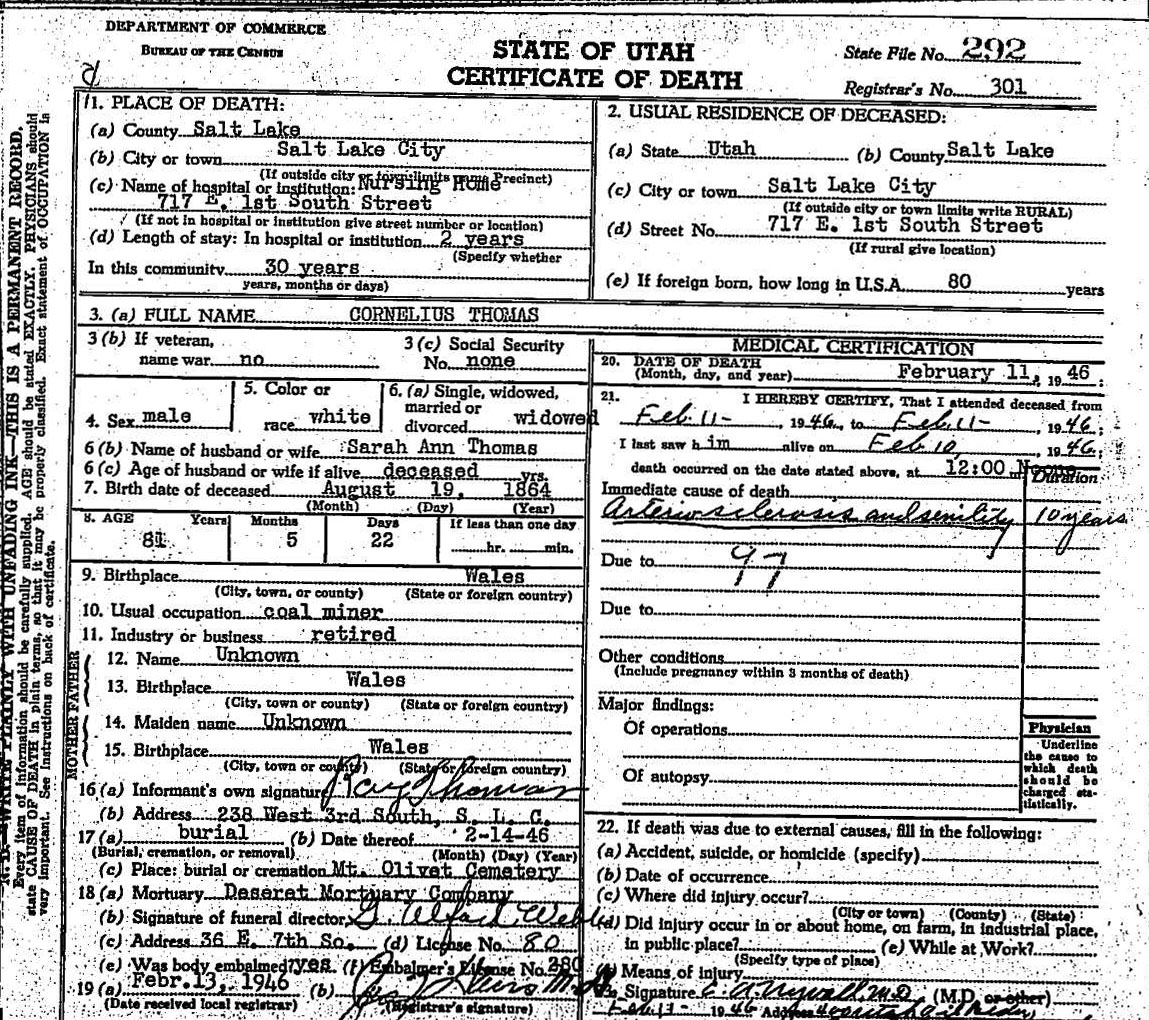 DEPARTMENT OF COMMERCE
BUREAU OF THE CENSUS
STATE OF UTAH
CERTIFICATE OF DEATH
State File No. 292
Registrar's No. 301
1. PLACE OF DEATH:
(a) County Salt Lake
(b) City or town Salt Lake City
(If outside city or town limits name Precinct)
(c) Name of hospital or institution: Nursing Home
717 E. 1st South Street
(If not in hospital or institution give street number or location)
(d) Length of stay: In hospital or institution 2 years
(Specify whether
In this community 30 years
years, months or days)
2. USUAL RESIDENCE OF DECEASED:
(a) State Utah (b) County Salt Lake
(c) City or town Salt Lake City
(If outside city or town limits write RURAL)
(d) Street No. 717 E. 1st South Street
(If rural give location)
(e) If foreign born, how long in U.S.A. 80 years
3. (a) FULL NAME CORNELIUS THOMAS
3 (b) If veteran,
name war no
3 (c) Social Security
No. none
4. Sex male
5. Color or
race white
6. (a) Single, widowed,
married or
divorced widowed
6 (b) Name of husband or wife Sarah Ann Thomas
6 (c) Age of husband or wife if alive deceased yrs.
7. Birth date of deceased August 19, 1864
(Month) (Day) (Year)
8. AGE Years Months Days If less than one day
81 5 22 hr. min.
9. Birthplace Wales
(City, town, or county) (State or foreign country)
10. Usual occupation coal miner
11. Industry or business retired
FATHER
12. Name Unknown
13. Birthplace Wales
(City, town or county) (State or foreign country)
MOTHER
14. Maiden name Unknown
15. Birthplace Wales
(City, town or county) (State or foreign country)
16 (a) Informant's own signature Ray Thomas
(b) Address 238 West 3rd South, S. L. C.
17 (a) burial (b) Date thereof 2-14-46
(Burial, cremation, or removal) (Month) (Day) (Year)
(c) Place: burial or cremation Mt. Olivet Cemetery
18 (a) Mortuary Deseret Mortuary Company
(b) Signature of funeral director
(c) Address 36 E. 7th So. (d) License No. 80
(e) Was body embalmed? yes (f) Embalmer's License No. 280
19 (a) Febr. 13, 1946 (b)
(Date received local registrar) (Registrar's signature)
MEDICAL CERTIFICATION
20. DATE OF DEATH
(Month, day, and year) February 11, 1946
21. I HEREBY CERTIFY, That I attended deceased from
Feb. 11-, 1946, to Feb. 11-, 1946;
I last saw him alive on Feb 10, 1946;
death occurred on the date stated above, at 12:00 Noon
Duration
Immediate cause of death
Arteriosclerosis and senility 10 years
Due to 97
Due to
Other conditions
(Include pregnancy within 3 months of death)
Major findings:
Of operations
Of autopsy
Physician
Underline
the cause to
which death
should be
charged sta-
tistically.
22. If death was due to external causes, fill in the following:
(a) Accident, suicide, or homicide (specify)
(b) Date of occurrence
(c) Where did injury occur?
(City or town) (County) (State)
(d) Did injury occur in or about home, on farm, in industrial place,
in public place? (e) While at Work?
(Specify type of place)
Means of injury
Signature M.D. (M.D. or other)
Feb 13- 1946 Address
N. B.—WRITE PLAINLY WITH UNFADING INK—THIS IS A PERMANENT RECORD.
Every item of information should be carefully supplied. AGE should be stated EXACTLY. PHYSICIANS should
state CAUSE OF DEATH in plain terms, so that it may be properly classified. Exact statement of OCCUPATION is
very important. See instructions on back of certificate.